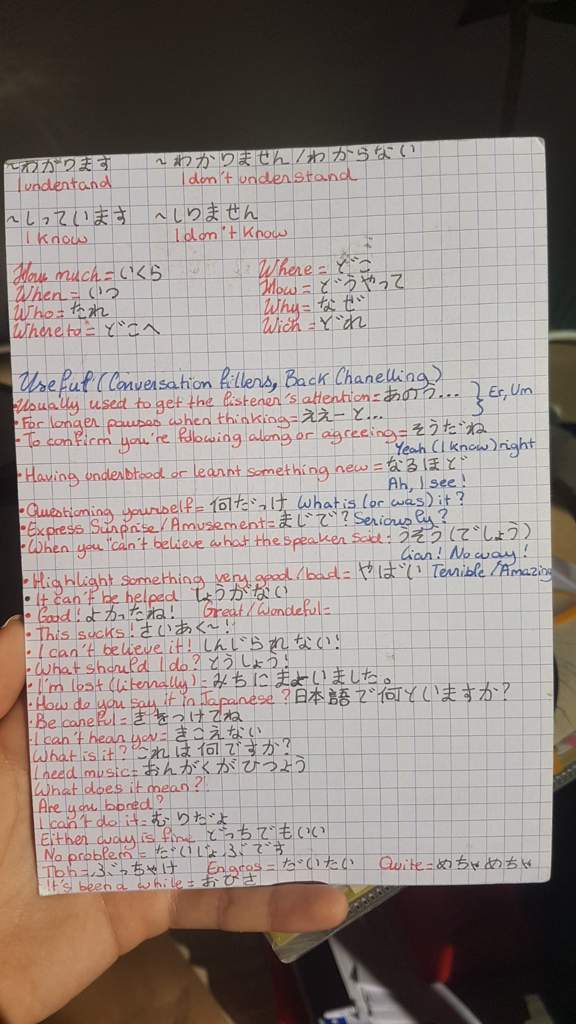 ~わがります ~わかりません/わからない
I understand I don't understand
~しっています ~しりません
I know I don't know
How much = いくら Where = どこ
When = いつ How = どうやって
Who = だれ Why = なぜ
Where to = どこへ Wich = どれ
Useful (Conversation fillers, Back Chanelling)
• Usually used to get the listener's attention = あのう... } Er, Um
• For longer pauses when thinking = ええーと...
• To confirm you're following along or agreeing = そうだね
Yeah (I know) right
• Having understood or learnt something new = なるほど
Ah, I see!
• Questioning yourself = 何だっけ What is (or was) it?
• Express Surprise/Amusement = まじで? Seriously?
• When you "can't believe what the speaker said = うそう (でしょう)
Liar! No way!
• Highlight something very good/bad = やばい Terrible/Amazing
• It can't be helped しょうがない
• Good! よかったね! Great/Wondeful =
• This sucks! さいあく~!
• I can't believe it! しんじられない!
• What should I do? どうしょう!
• I'm lost (literally) = みちにまよいました。
• How do you say it in Japanese? 日本語で何といますか?
• Be careful = きをつけてね
• I can't hear you = きこえない
What is it? これは何ですか?
I need music = おんがくがひつよう
What does it mean?
Are you bored?
I can't do it = むりだよ
Either way is fine どっちでもいい
No problem = だいじょぶです
Tbh = ぶっちゃけ Engros = だいたい Quite = めちゃめちゃ
It's been a while = おひさ